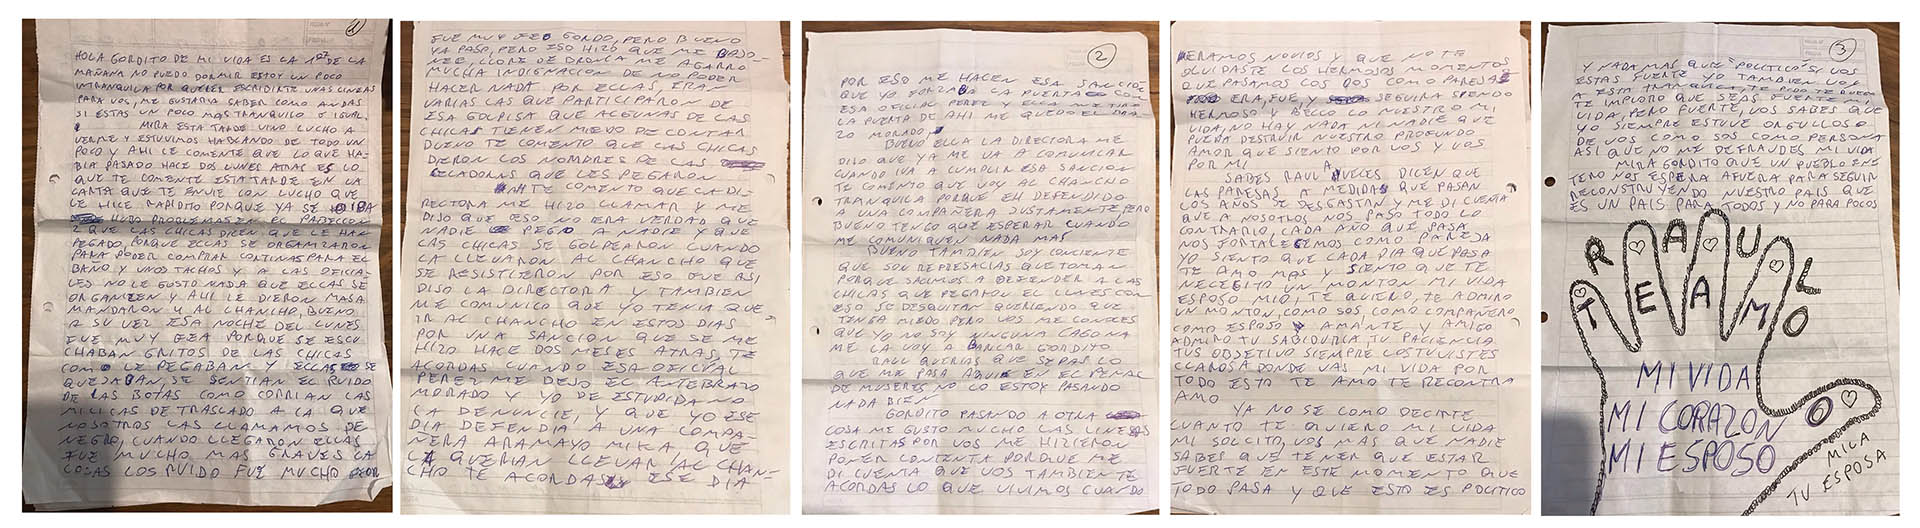 1
HOLA GORDITO DE MI VIDA ES LA 1 DE LA
MAÑANA NO PUEDO DORMIR ESTOY UN POCO
INTRANQUILA POR QUERER ESCRIBIRTE UNAS LINEAS
PARA VOS, ME GUSTARIA SABER COMO ANDAS
SI ESTAS UN POCO MAS TRANQUILO O IGUAL.
MIRA ESTA TARDE VINO LUCHO A
VERME Y ESTUVIMOS HABLANDO DE TODO UN
POCO Y AHI LE COMENTE QUE LO QUE HA-
BIA PASADO HACE DOS LUNES ATRAS ES LO
QUE TE COMENTE ESTA TARDE EN LA
CARTA QUE TE ENVIE CON LUCHO QUE
LE HICE RAPIDITO PORQUE YA SE IBA
HUBO PROBLEMAS EN EL PABELLON
2 QUE LAS CHICAS DICEN QUE LE HAN
PEGADO, PORQUE ELLAS SE ORGANIZARON
PARA PODER COMPRAR CORTINAS PARA EL
BAÑO Y UNOS TACHOS Y A LAS OFICIA-
LES NO LE GUSTO NADA QUE ELLAS SE
ORGANIZEN Y AHI LE DIERON MASA
MANDARON 4 AL CHANCHO, BUENO
A SU VEZ ESA NOCHE DEL LUNES
FUE MUY FEA PORQUE SE ESCU
CHABAN GRITOS DE LAS CHICAS
COMO LE PEGABAN Y ELLAS SE
QUEJABAN, SE SENTIAN EL RUIDO
DE LAS BOTAS COMO CORRIAN LAS
MILICAS DE TRASLADO A LA QUE
NOSOTROS LAS LLAMAMOS DE
NEGRO, CUANDO LLEGARON ELLAS
FUE MUCHO MAS GRAVES LA
COSAS LOS RUIDO FUE MUCHO PEOR
FUE MUY FEO GORDO, PERO BUENO
YA PASO, PERO ESO HIZO QUE ME
LLORE DE BRONCA ME AGARRO
MUCHA INDIGNACION DE NO PODER
HACER NADA POR ELLAS, ERAN
VARIAS LAS QUE PARTICIPARON DE
ESA GOLPISA QUE ALGUNAS DE LAS
CHICAS TIENEN MIEDO DE CONTAR
BUENO TE COMENTO QUE LAS CHICAS
DIERON LOS NOMBRES DE LAS
CELADORAS QUE LES PEGARON
AH TE COMENTO QUE LA DI-
RECTORA ME HIZO LLAMAR Y ME
DIJO QUE ESO NO ERA VERDAD QUE
NADIE PEGO A NADIE Y QUE
LAS CHICAS SE GOLPEARON CUANDO
LA LLEVARON AL CHANCHO QUE
SE RESISTIERON POR ESO FUE ASI
DIJO LA DIRECTORA Y TAMBIEN
ME COMUNICO QUE YO TENIA QUE
IR AL CHANCHO EN ESTOS DIAS
POR UNA SANCION QUE SE ME
HIZO HACE DOS MESES ATRAS, TE
ACORDAS CUANDO ESA OFICIAL
PEREZ ME DEJO EL ANTEBRAZO
MORADO Y YO DE ESTUPIDA NO
LA DENUNCIE, Y QUE YO ESE
DIA DEFENDIA A UNA COMPA-
ÑERA ARAMAYO MIKA QUE
LA QUERIAN LLEVAR AL CHAN-
CHO TE ACORDAS ESE DIA
2
POR ESO ME HACEN ESA SANCION
QUE YO FORZABA LA PUERTA CON
ESA OFICIAL PEREZ Y ELLA ME TIRA
LA PUERTA DE AHI ME QUEDO EL BRA
ZO MORADO,
BUENO ELLA LA DIRECTORA ME
DIJO QUE YA ME VA A COMUNICAR
CUANDO IVA A CUMPLIR ESA SANCION
TE COMENTO QUE VOY AL CHANCHO
TRANQUILA PORQUE EH DEFENDIDO
A UNA COMPAÑERA JUSTAMENTE, PERO
BUENO TENGO QUE ESPERAR CUANDO
ME COMUNIQUEN NADA MAS
BUENO TAMBIEN SOY CONCIENTE
QUE SON REPRESACIAS QUE TOMAN
PORQUE SALIMOS A DEFENDER A LAS
CHICAS QUE PEGARON EL LUNES CON
ESO SE DESQUITAN QUERIENDO QUE
TENGA MIEDO PERO VOS ME CONOCES
QUE YO NO SOY NINGUNA CAGONA
ME LA VOY A BANCAR GORDITO
RAUL QUERIAS QUE SEPAS LO
QUE ME PASA AQUI EN EL PENAL
DE MUJERES NO LO ESTOY PASANDO
NADA BIEN
GORDITO PASANDO A OTRA
COSA ME GUSTO MUCHO LAS LINEAS
ESCRITAS POR VOS ME HIZIERON
PONER CONTENTA PORQUE ME
DI CUENTA QUE VOS TAMBIEN TE
ACORDAS LO QUE VIVIMOS CUANDO
ERAMOS NOVIOS Y QUE NO TE
OLVIDASTE LOS HERMOSOS MOMENTOS
QUE PASAMOS LOS DOS COMO PAREJA
ERA, FUE, Y SEGUIRA SIENDO
HERMOSO Y BELLO LO NUESTRO MI
VIDA, NO HAY NADA NI NADIE QUE
PUEDA DESTRUIR NUESTRO PROFUNDO
AMOR QUE SIENTO POR VOS Y VOS
POR MI
SABES RAUL A VECES DICEN QUE
LAS PAREJAS A MEDIDAS QUE PASAN
LOS AÑOS SE DESGASTAN Y ME DI CUENTA
QUE A NOSOTROS NOS PASO TODO LO
CONTRARIO, CADA AÑO QUE PASA
NOS FORTALECEMOS COMO PAREJA
YO SIENTO QUE CADA DIA QUE PASA
TE AMO MAS Y SIENTO QUE TE
NECESITO UN MONTON MI VIDA
ESPOSO MIO, TE QUIERO, TE ADMIRO
UN MONTON, COMO SOS, COMO COMPAÑERO
COMO ESPOSO Y AMANTE Y AMIGO
ADMIRO TU SABIDURIA, TU PACIENCIA
TUS OBJETIVO SIEMPRE LOS TUVISTES
CLAROS A DONDE VAS MI VIDA POR
TODO ESTO TE AMO TE RECONTRA
AMO
YA NO SE COMO DECIRTE
CUANTO TE QUIERO MI VIDA
MI SOLCITO, VOS MAS QUE NADIE
SABES QUE TENER QUE ESTAR
FUERTE EN ESTE MOMENTO QUE
TODO PASA Y QUE ESTO ES POLITICO
3
Y NADA MAS QUE "POLITICO" SI VOS
ESTAS FUERTE YO TAMBIEN VOY
A ESTA TRANQUILA, TE PIDO TE RUEGO
TE IMPLORO QUE SEAS FUERTE MI
VIDA, PERO FUERTE, VOS SABES QUE
YO SIEMPRE ESTUVE ORGULLOSA
DE VOS COMO SOS COMO PERSONA
ASI QUE NO ME DEFRAUDES MI VIDA
MIRA GORDITO QUE UN PUEBLO ENE
TERO NOS ESPERA AFUERA PARA SEGUIR
RECONSTRUYENDO NUESTRO PAIS QUE
ES UN PAIS PARA TODOS Y NO PARA POCOS
RAUL
TE AMO
MI VIDA
MI CORAZON
MI ESPOSO
MILA
TU ESPOSA